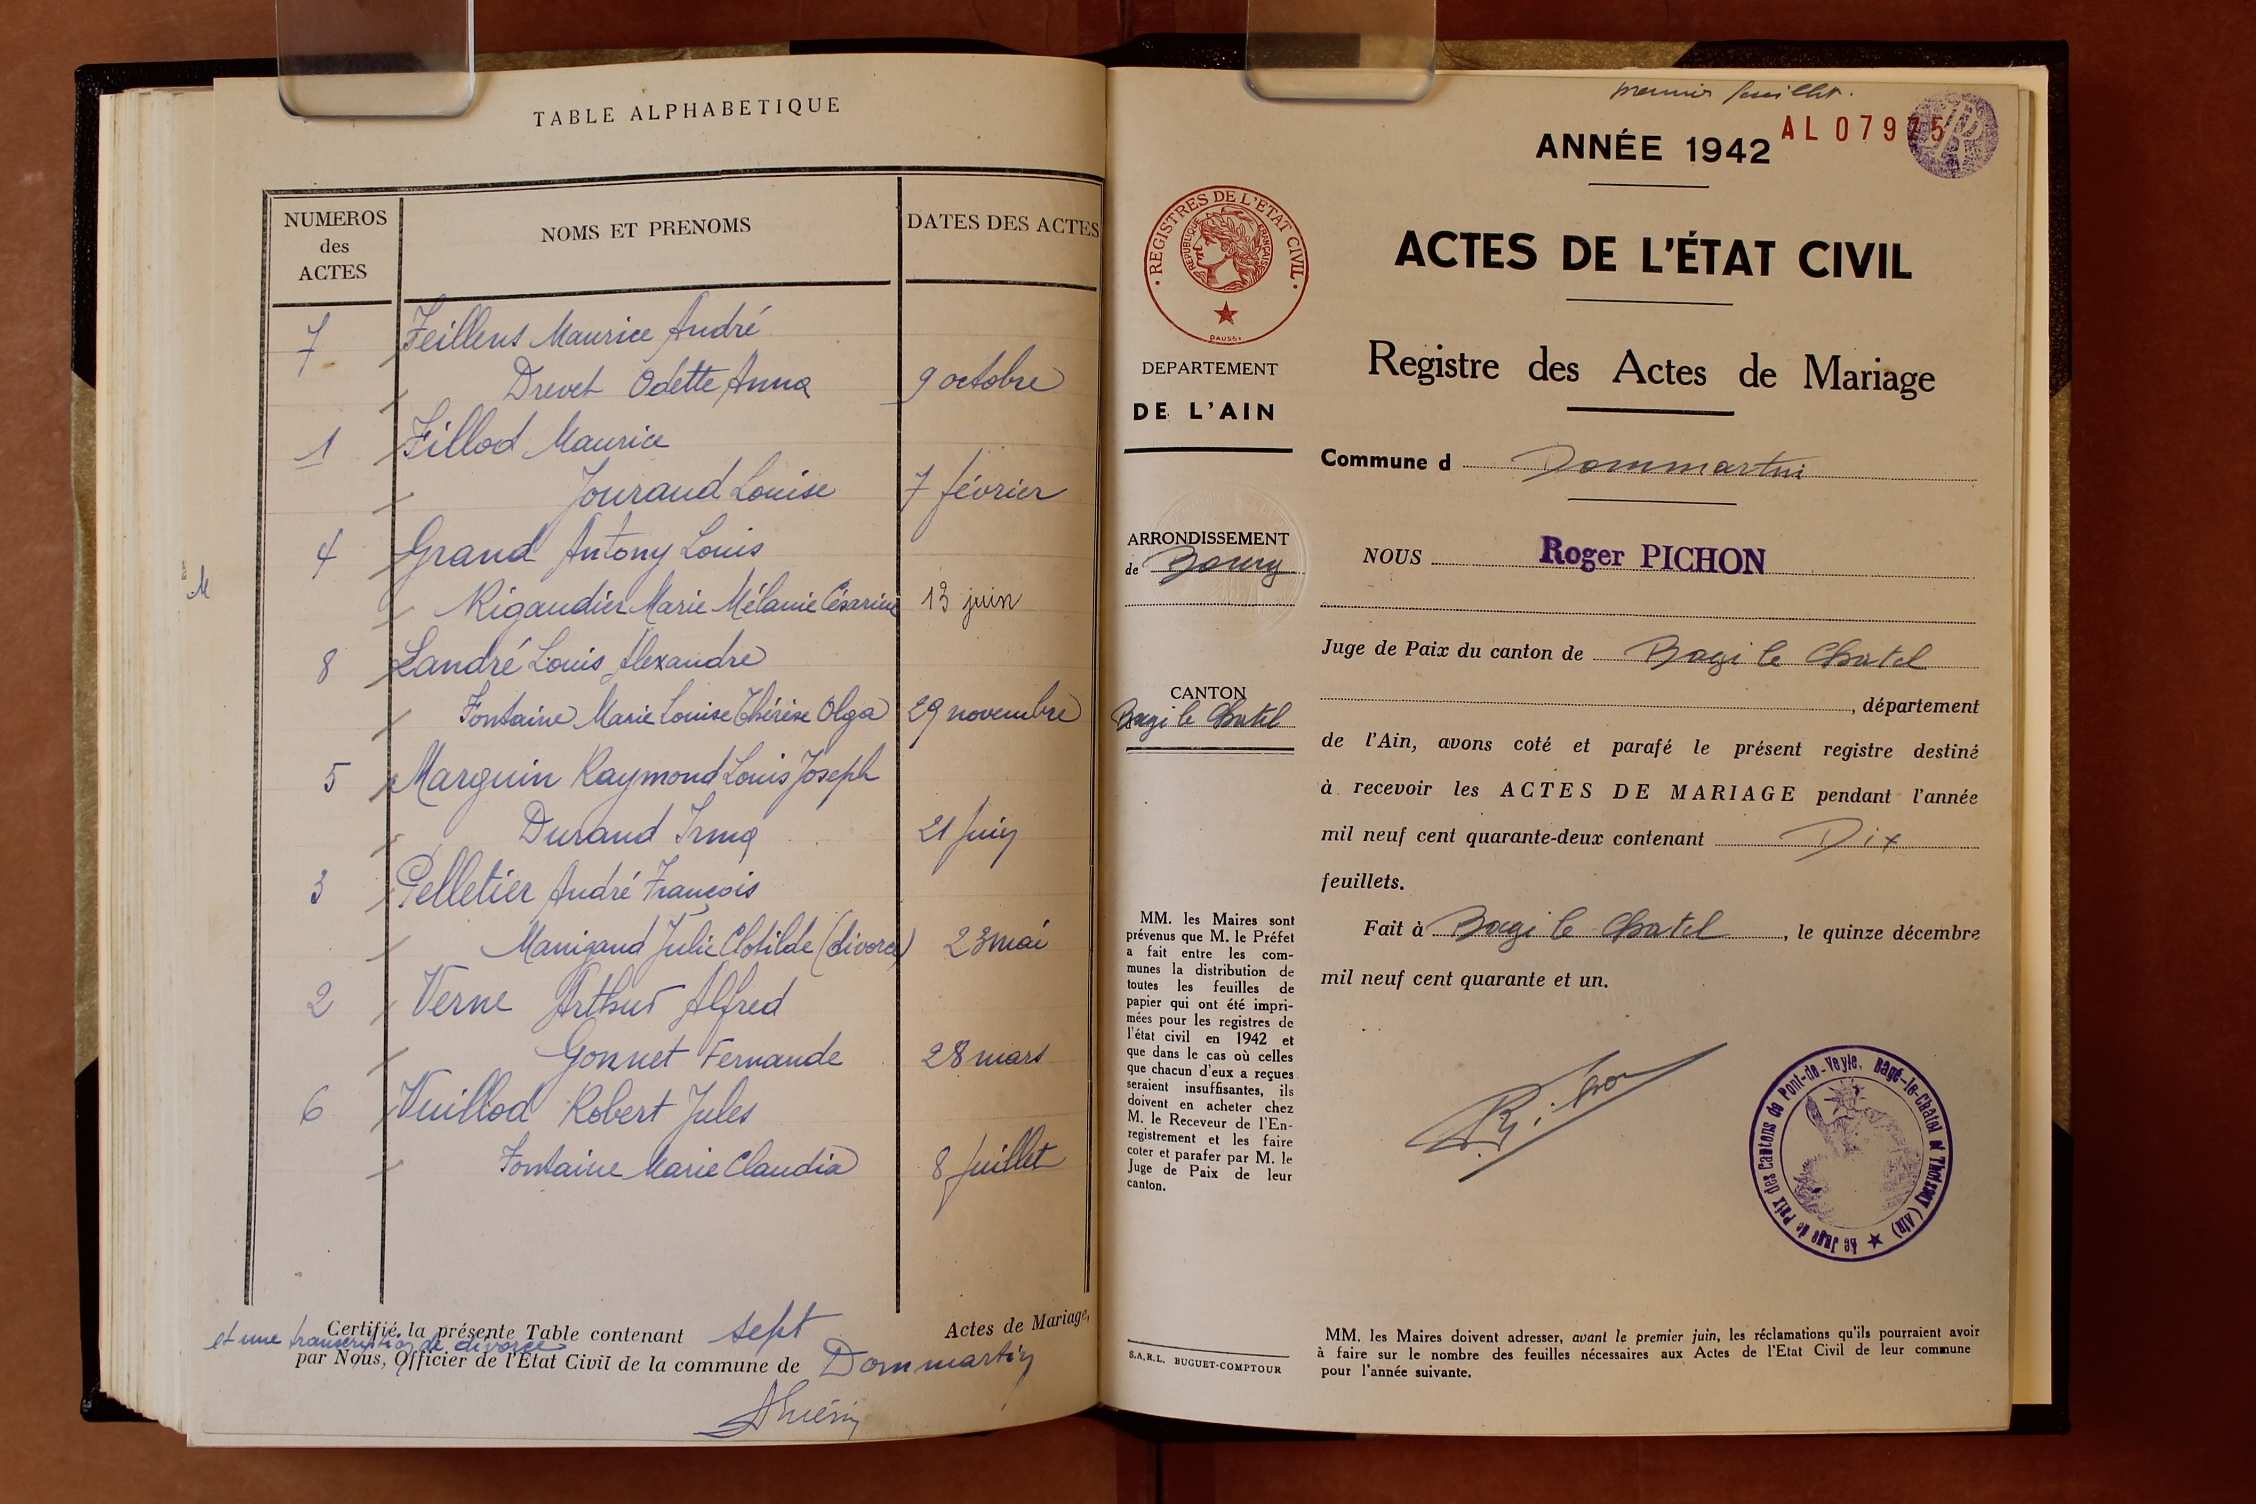 TABLE ALPHABETIQUE
NUMEROS
des
ACTES
NOMS ET PRENOMS
DATES DES ACTES
7 Feillens Maurice André
Drevet Odette Anna 9 octobre
1 Fillod Maurice
Jouraud Louise 7 février
4 Grand Antony Louis
Rigaudier Marie Mélanie Césarine 13 juin
8 Landré Louis Alexandre
Fontaine Marie Louise Thérèse Olga 29 novembre
5 Marguin Raymond Louis Joseph
Durand Irma 21 Juin
3 Pelletier André François
Manigaud Julie Clotilde (divorce) 23 mai
2 Verne Arthur Alfred
Gonnet Fernande 28 mars
6 Vuillod Robert Jules
Fontaine Marie Claudia 8 Juillet
M
Certifié la présente Table contenant sept Actes de Mariage,
et une transcription de divorce
par Nous, Officier de l'Etat Civil de la commune de Dommartin
premier feuillet.
AL 07975
ANNÉE 1942
ACTES DE L'ÉTAT CIVIL
Registre des Actes de Mariage
REGISTRES DE L'ETAT CIVIL
REPUBLIQUE FRANÇAISE
DEPARTEMENT
DE L'AIN
ARRONDISSEMENT
de Bourg
CANTON
Bagé le Chatel
MM. les Maires sont
prévenus que M. le Préfet
a fait entre les com-
munes la distribution de
toutes les feuilles de
papier qui ont été impri-
mées pour les registres de
l'état civil en 1942 et
que dans le cas où celles
que chacun d'eux a reçues
seraient insuffisantes, ils
doivent en acheter chez
M. le Receveur de l'En-
registrement et les faire
coter et parafer par M. le
Juge de Paix de leur
canton.
S.A.R.L. BUGUET-COMPTOUR
Commune d Dommartin
NOUS Roger PICHON
Juge de Paix du canton de Bagé le Chatel
, département
de l'Ain, avons coté et parafé le présent registre destiné
à recevoir les ACTES DE MARIAGE pendant l'année
mil neuf cent quarante-deux contenant Dix
feuillets.
Fait à Bagé le Chatel, le quinze décembre
mil neuf cent quarante et un.
Le Juge de Paix des Cantons de Pont-de-Veyle, Bagé-le-Chatel et Thoissey (Ain)
MM. les Maires doivent adresser, avant le premier juin, les réclamations qu'ils pourraient avoir
à faire sur le nombre des feuilles nécessaires aux Actes de l'Etat Civil de leur commune
pour l'année suivante.